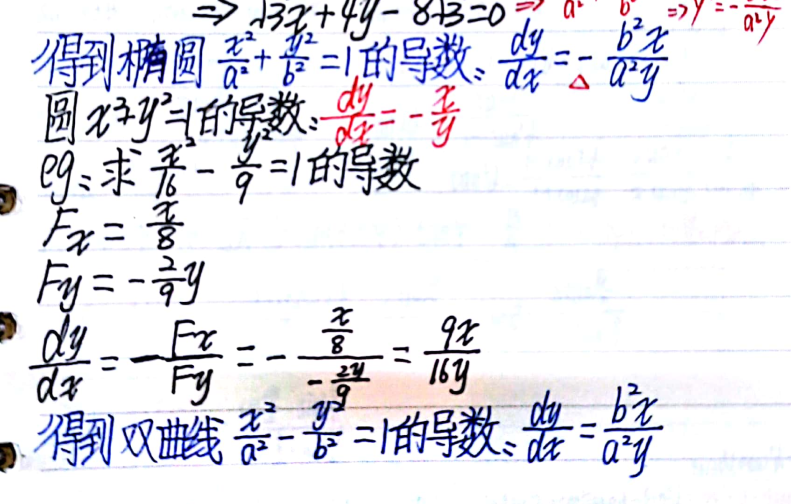 ⇒ √3x+4y-8√3=0 ⇒ a² b² ⇒ y' = - a²y
得到椭圆 x²/a² + y²/b² = 1 的导数: dy/dx = - b²x/a²y
圆 x²+y²=1的导数: dy/dx = - x/y
eg: 求 x²/16 - y²/9 = 1 的导数
Fx = x/8
Fy = - 2/9 y
dy/dx = - Fx/Fy = - (x/8)/(- 2y/9) = 9x/16y
得到双曲线 x²/a² - y²/b² = 1的导数: dy/dx = b²x/a²y